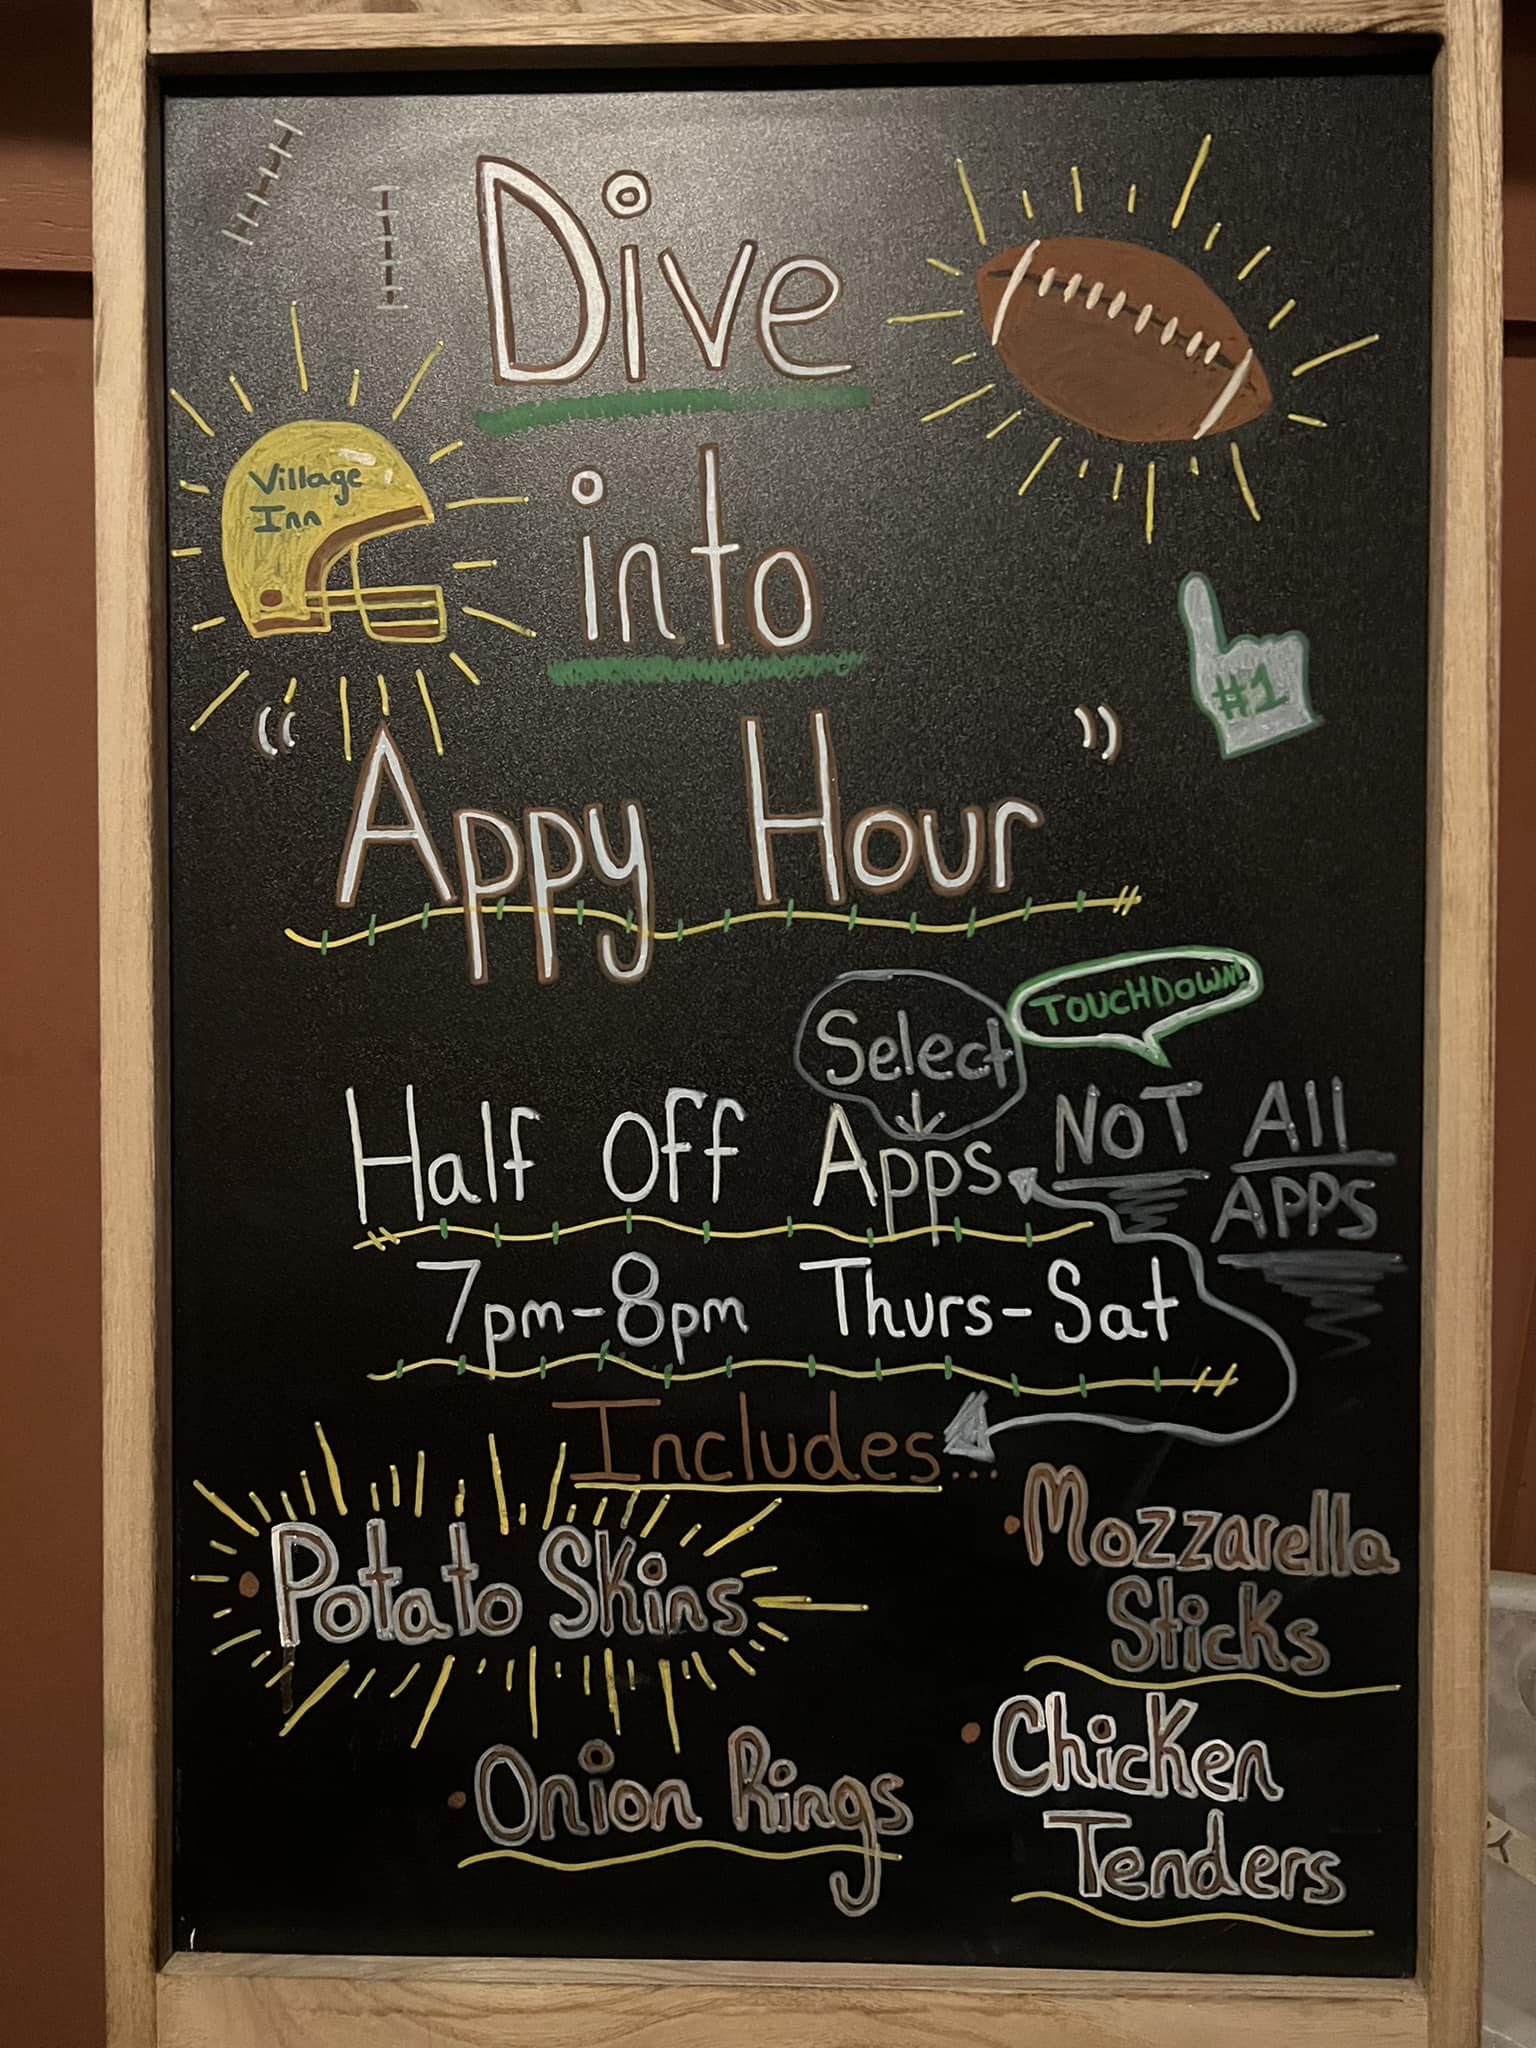 Dive
Village
Inn
into
#1
"Appy Hour"
Select
TOUCHDOWN!
Half Off Apps
NOT All
APPS
7pm-8pm Thurs-Sat
Includes...
• Potato Skins
• Mozzarella
Sticks
• Onion Rings
• Chicken
Tenders